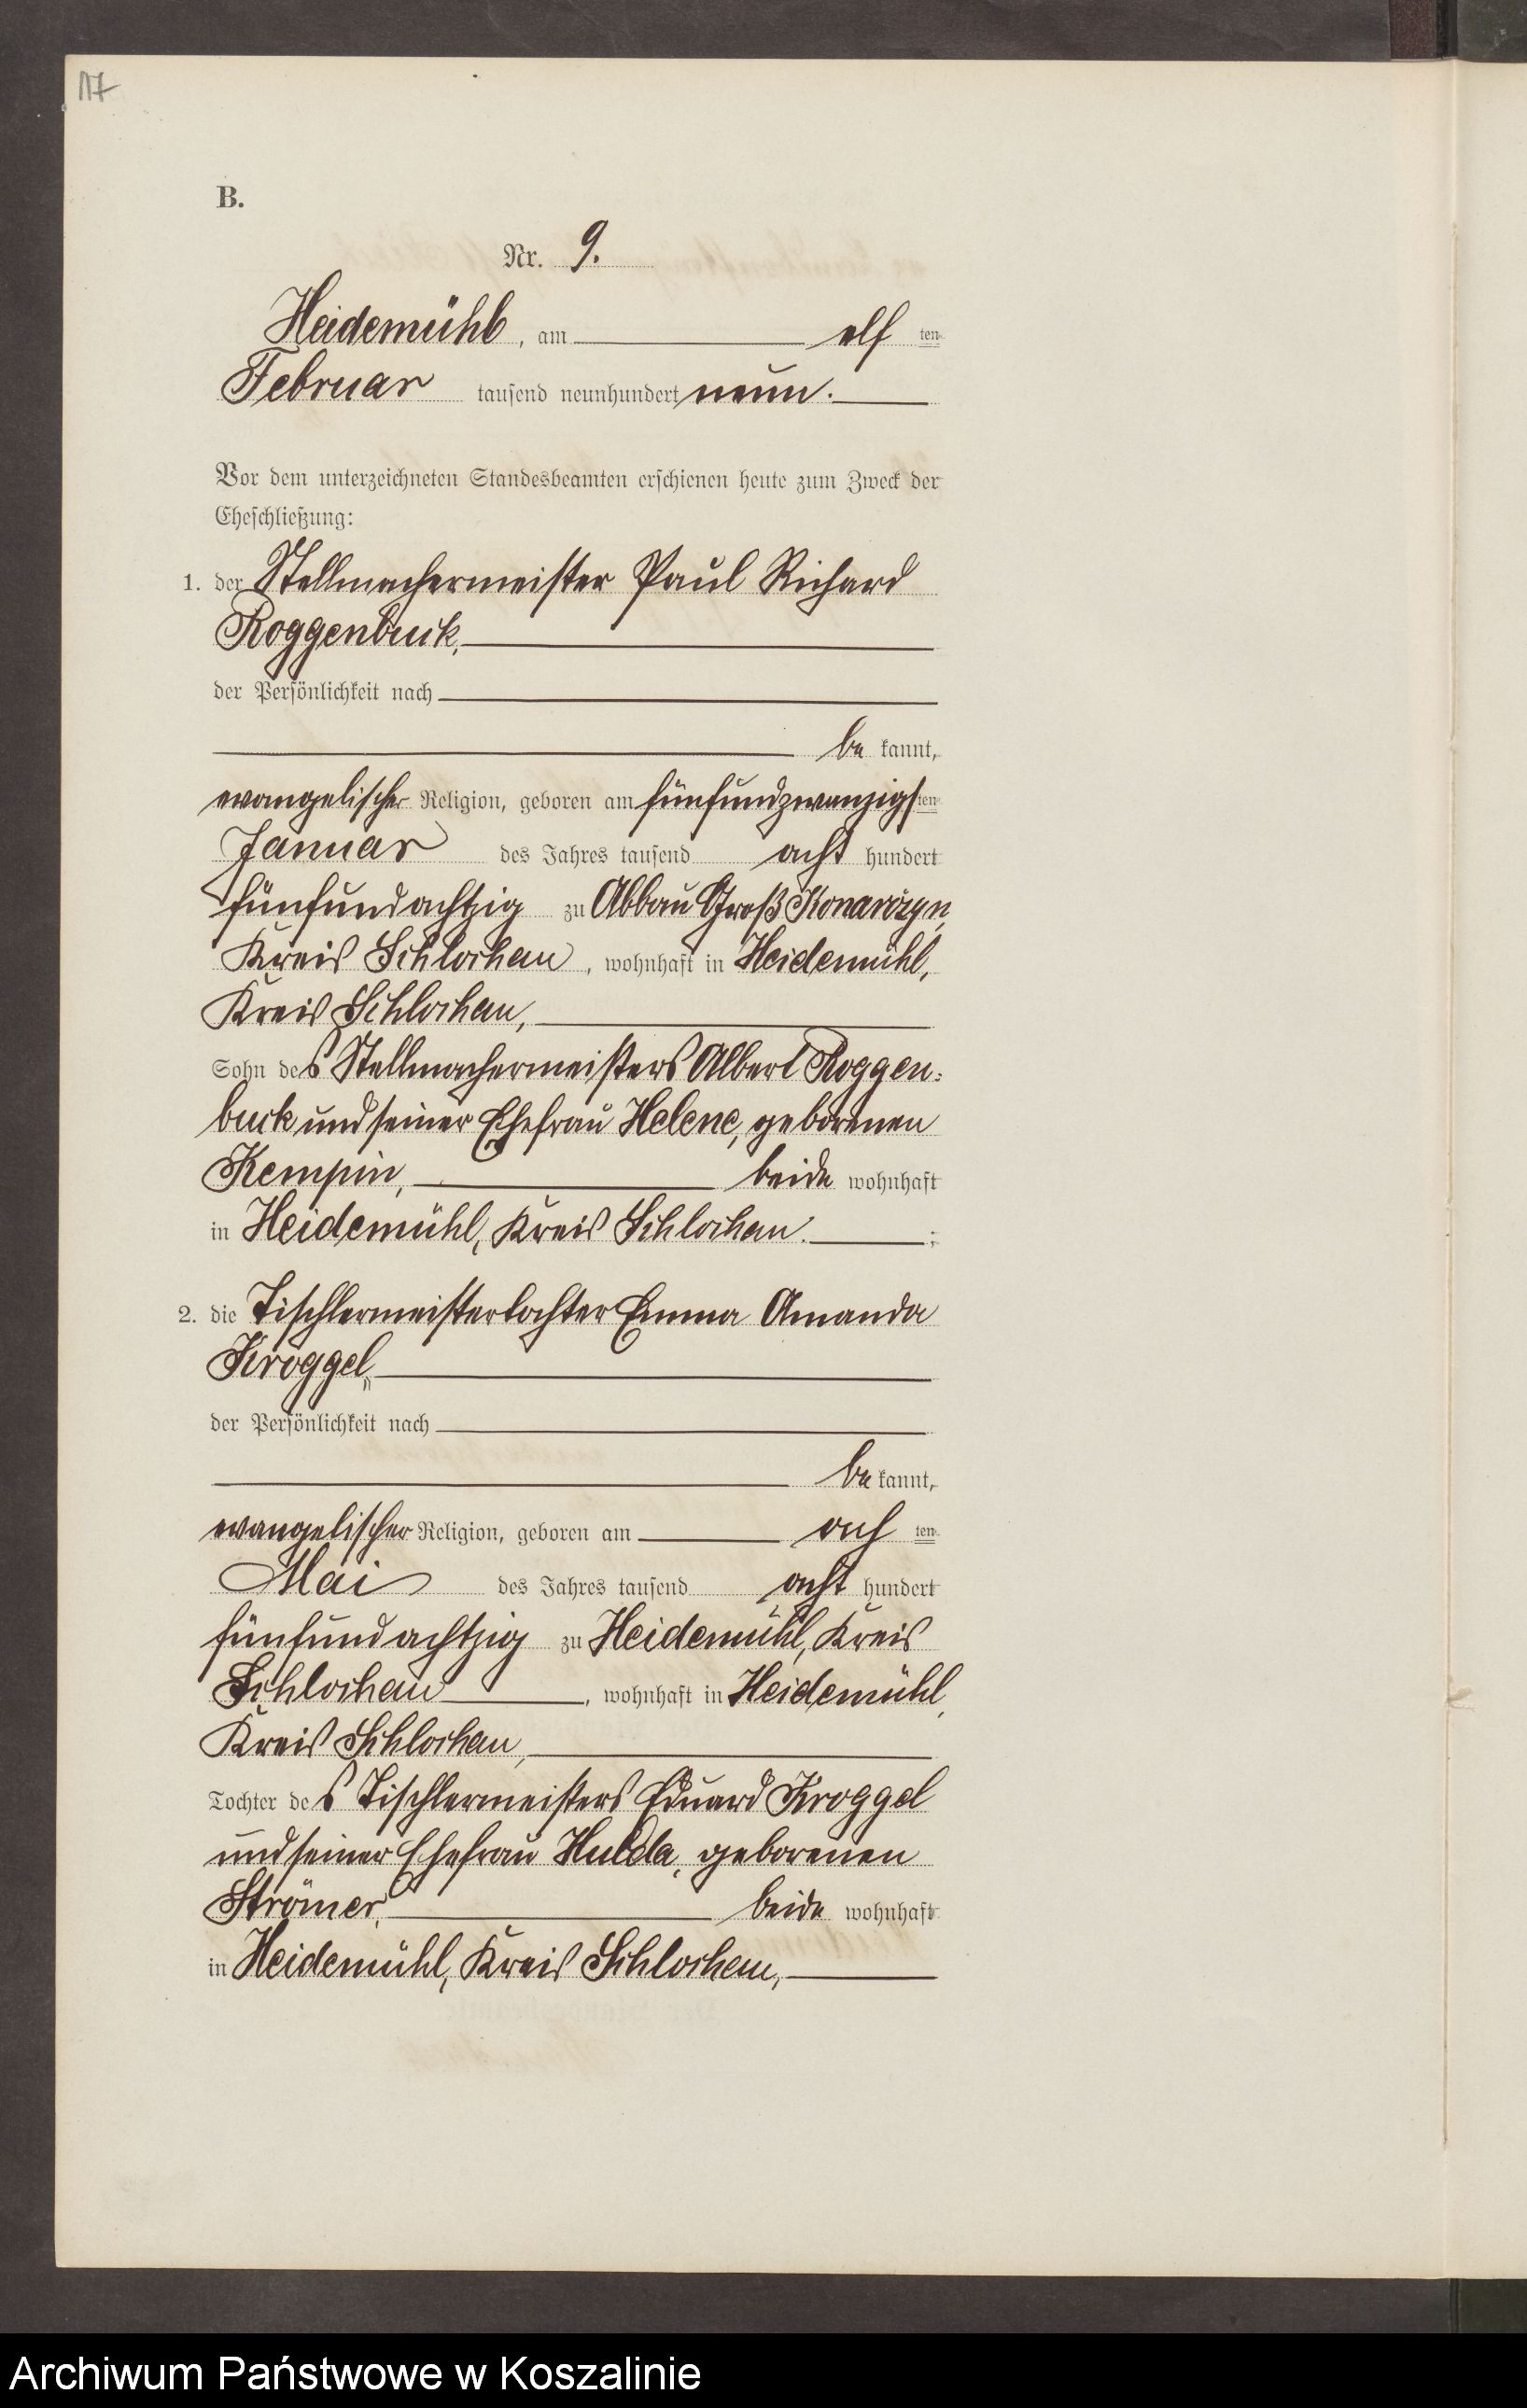 17
B.
Nr. 9.
Heidemühl, am elf ten
Februar tausend neunhundert neun.
Vor dem unterzeichneten Standesbeamten erschienen heute zum Zweck der
Eheschließung:
1. der Stellmachermeister Paul Richard
Roggenbuck,
der Persönlichkeit nach
be kannt,
evangelischer Religion, geboren am fünfundzwanzigsten
Januar des Jahres tausend acht hundert
fünfundachtzig zu Abbau Groß Konarczyn,
Kreis Schlochau, wohnhaft in Heidemühl,
Kreis Schlochau,
Sohn des Stellmachermeisters Albert Roggen=
buck und seiner Ehefrau Helene, geborenen
Kempin, beide wohnhaft
in Heidemühl, Kreis Schlochau. ;
2. die Tischlermeistertochter Emma Amanda
Kroggel,
der Persönlichkeit nach
be kannt,
evangelischer Religion, geboren am ach ten
Mai des Jahres tausend acht hundert
fünfundachtzig zu Heidemühl, Kreis
Schlochau, wohnhaft in Heidemühl,
Kreis Schlochau,
Tochter des Tischlermeisters Eduard Kroggel
und seiner Ehefrau Hulda, geborenen
Strömer, beide wohnhaft
in Heidemühl, Kreis Schlochau,
Archiwum Państwowe w Koszalinie